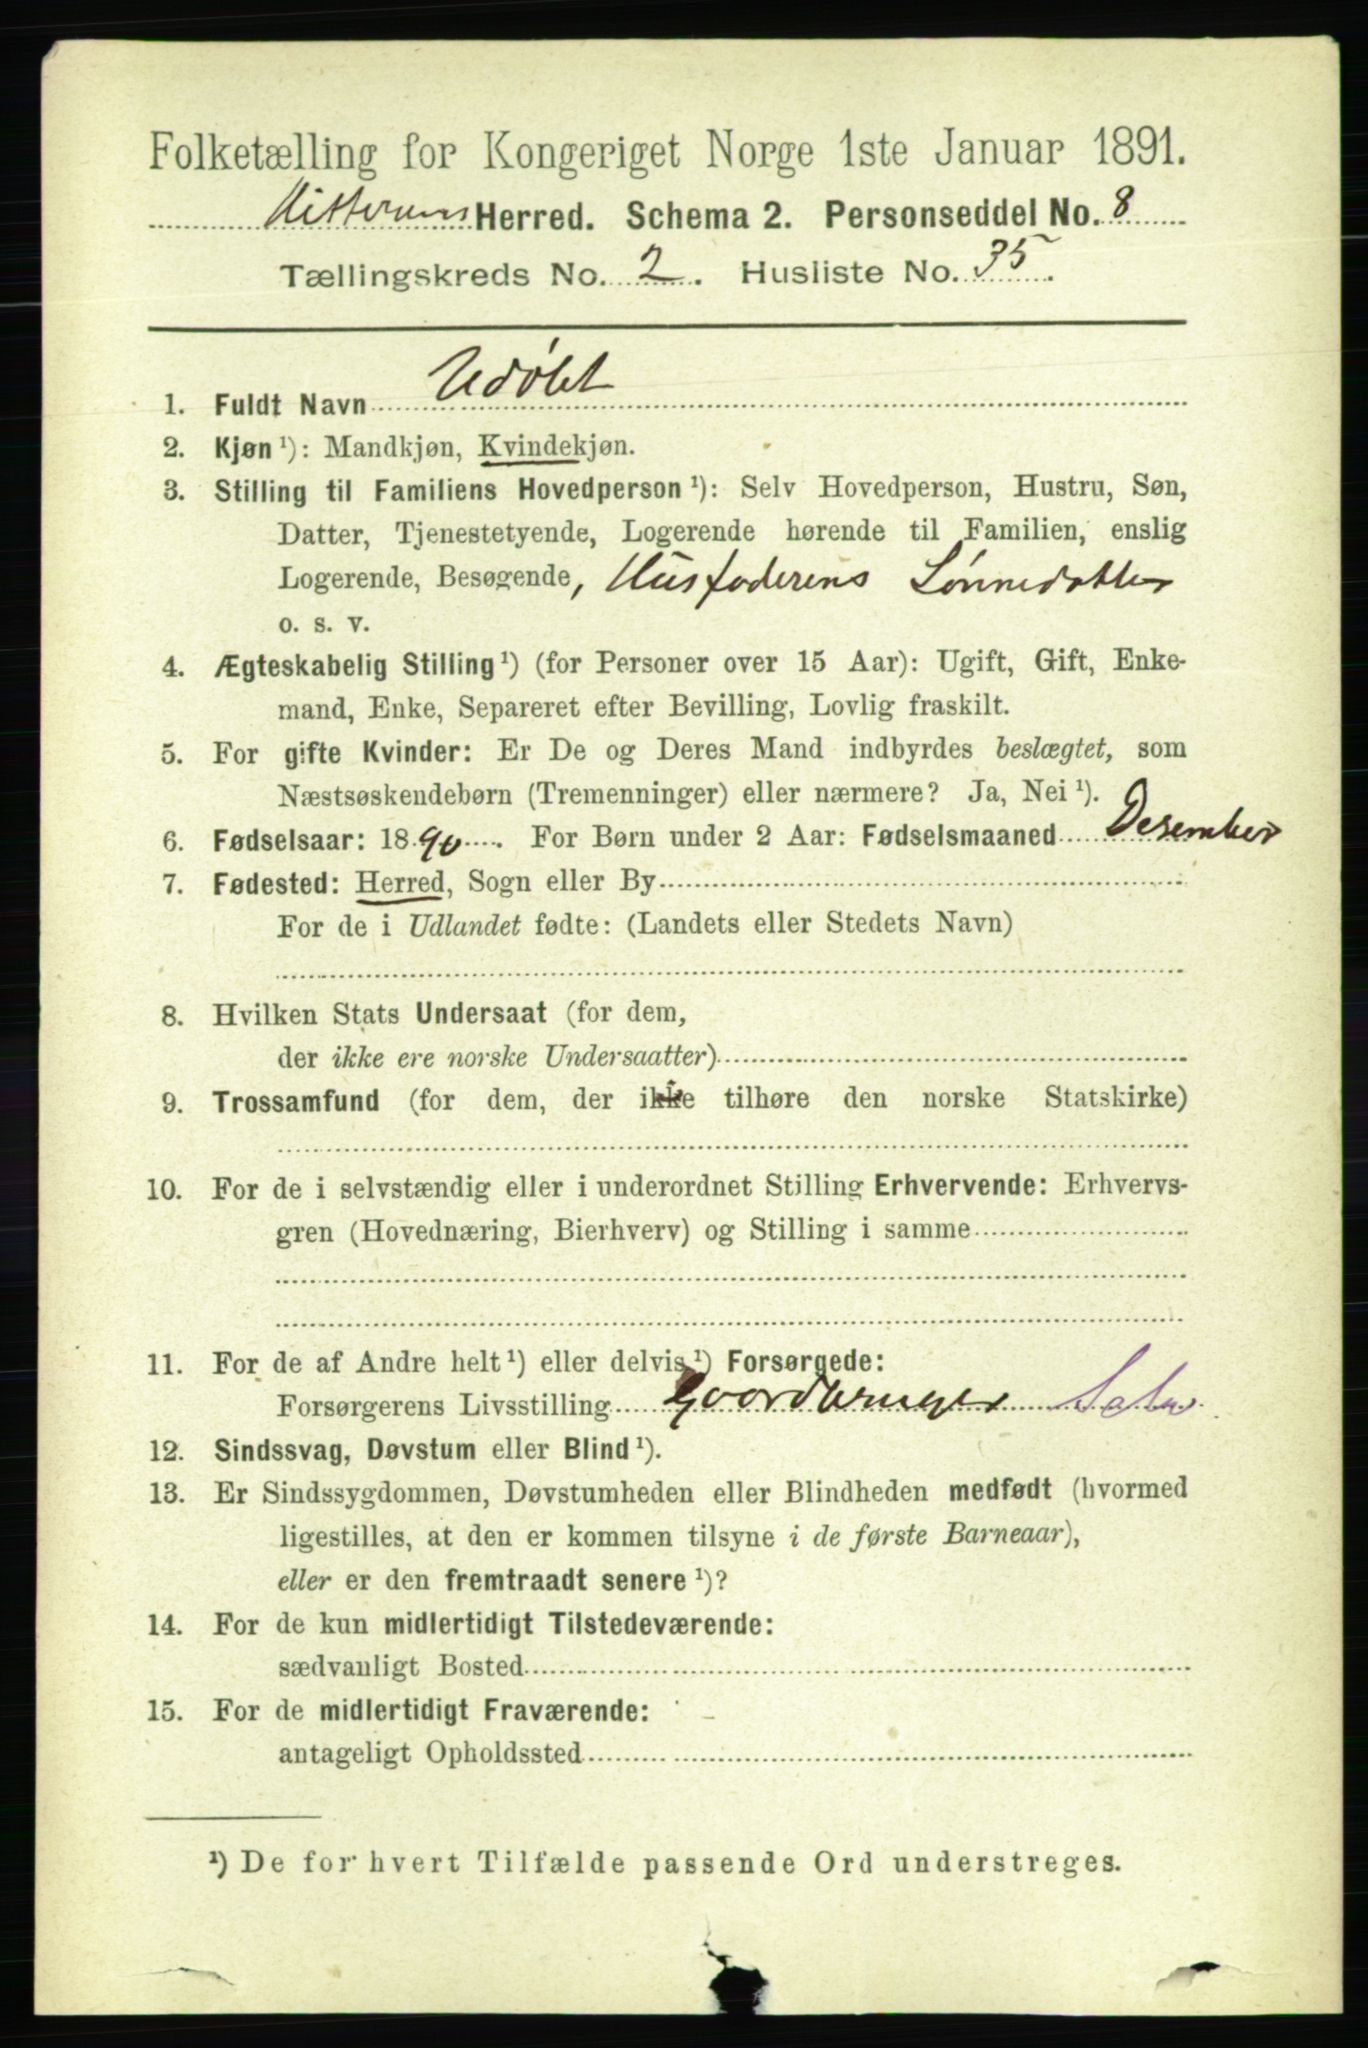 Folketælling for Kongeriget Norge 1ste Januar 1891.
Hitterøens Herred. Schema 2. Personseddel No. 8
Tællingskreds No. 2. Husliste No. 35.
1. Fuldt Navn Udøbt
2. Kjøn ¹): Mandkjøn, Kvindekjøn.
3. Stilling til Familiens Hovedperson ¹): Selv Hovedperson, Hustru, Søn,
Datter, Tjenestetyende, Logerende hørende til Familien, enslig
Logerende, Besøgende, Husfaderens Sønnedatter
o. s. v.
4. Ægteskabelig Stilling ¹) (for Personer over 15 Aar): Ugift, Gift, Enke-
mand, Enke, Separeret efter Bevilling, Lovlig fraskilt.
5. For gifte Kvinder: Er De og Deres Mand indbyrdes beslægtet, som
Næstsøskendebørn (Tremenninger) eller nærmere? Ja, Nei ¹).
6. Fødselsaar: 1890. For Børn under 2 Aar: Fødselsmaaned Desember
7. Fødested: Herred, Sogn eller By
For de i Udlandet fødte: (Landets eller Stedets Navn)
8. Hvilken Stats Undersaat (for dem,
der ikke ere norske Undersaatter)
9. Trossamfund (for dem, der ikke tilhøre den norske Statskirke)
10. For de i selvstændig eller i underordnet Stilling Erhvervende: Erhvervs-
gren (Hovednæring, Bierhverv) og Stilling i samme
11. For de af Andre helt ¹) eller delvis ¹) Forsørgede:
Forsørgerens Livsstilling Gaardbruger Selv
12. Sindssvag, Døvstum eller Blind ¹).
13. Er Sindssygdommen, Døvstumheden eller Blindheden medfødt (hvormed
ligestilles, at den er kommen tilsyne i de første Barneaar),
eller er den fremtraadt senere ¹)?
14. For de kun midlertidigt Tilstedeværende:
sædvanligt Bosted
15. For de midlertidigt Fraværende:
antageligt Opholdssted
¹) De for hvert Tilfælde passende Ord understreges.